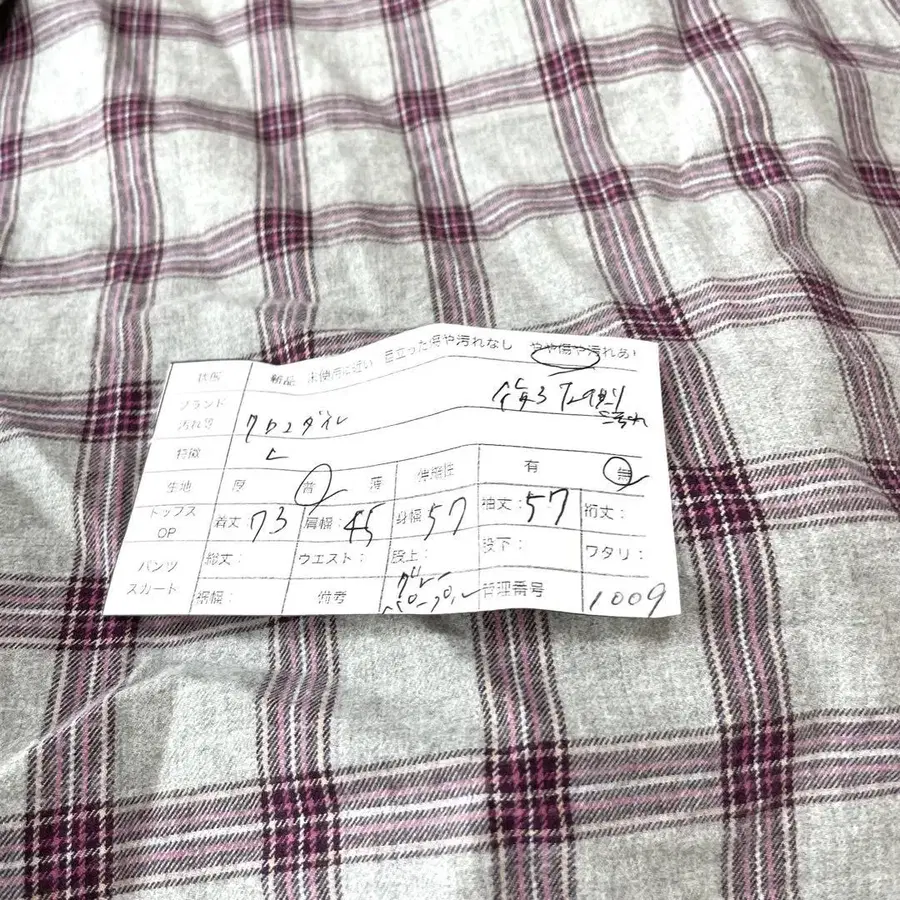 状態 新品 未使用に近い 目立った傷や汚れなし やや傷や汚れあり
ブランド
汚れ等 クロコダイル
特徴 L
生地 厚 普 薄 伸縮性 有 無
トップス OP 着丈:73 肩幅:45 身幅:57 袖丈:57 裄丈:
パンツ スカート 総丈: ウエスト: 股上: 股下: ワタリ:
裾幅: 備考 グレー パープル 管理番号 1009